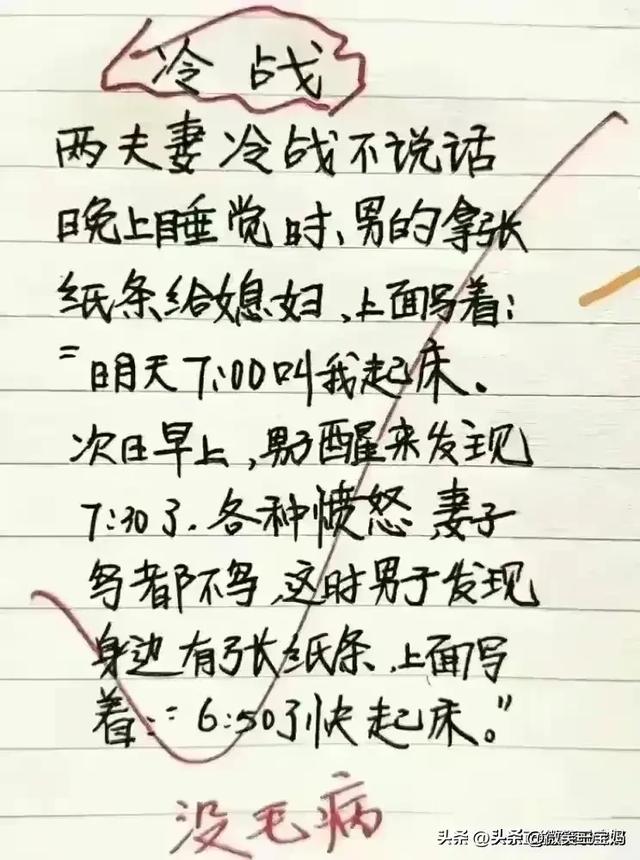 冷战
两夫妻冷战不说话
晚上睡觉时、男的拿张
纸条给媳妇、上面写着:
"明天7:00叫我起床、
次日早上,男子醒来发现
7:30了、各种愤怒 妻子
鸟都不鸟、这时男子发现
身边有张纸条、上面写
着:"6:50了快起床。"
没毛病
头条 @头条